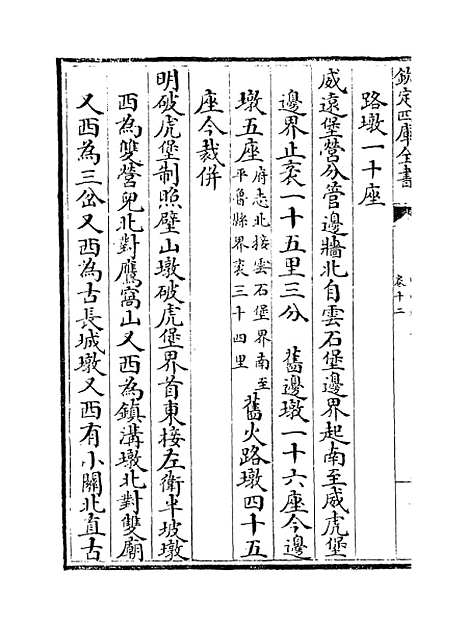 欽定四庫全書
卷十二
路墩一十座
威遠堡營分管邊牆北自雲石堡邊界起南至威虎堡
邊界止袤一十五里三分　舊邊墩一十六座今邊
墩五座府志北接雲石堡界南至平魯縣界袤三十四里　舊火路墩四十五
座今裁併
明破虎堡制照壁山墩破虎堡界首東接左衛半坡墩
西為雙營兒北對鷹窩山又西為鎮溝墩北對雙廟
又西為三岔又西為古長城墩又西有小關北直古